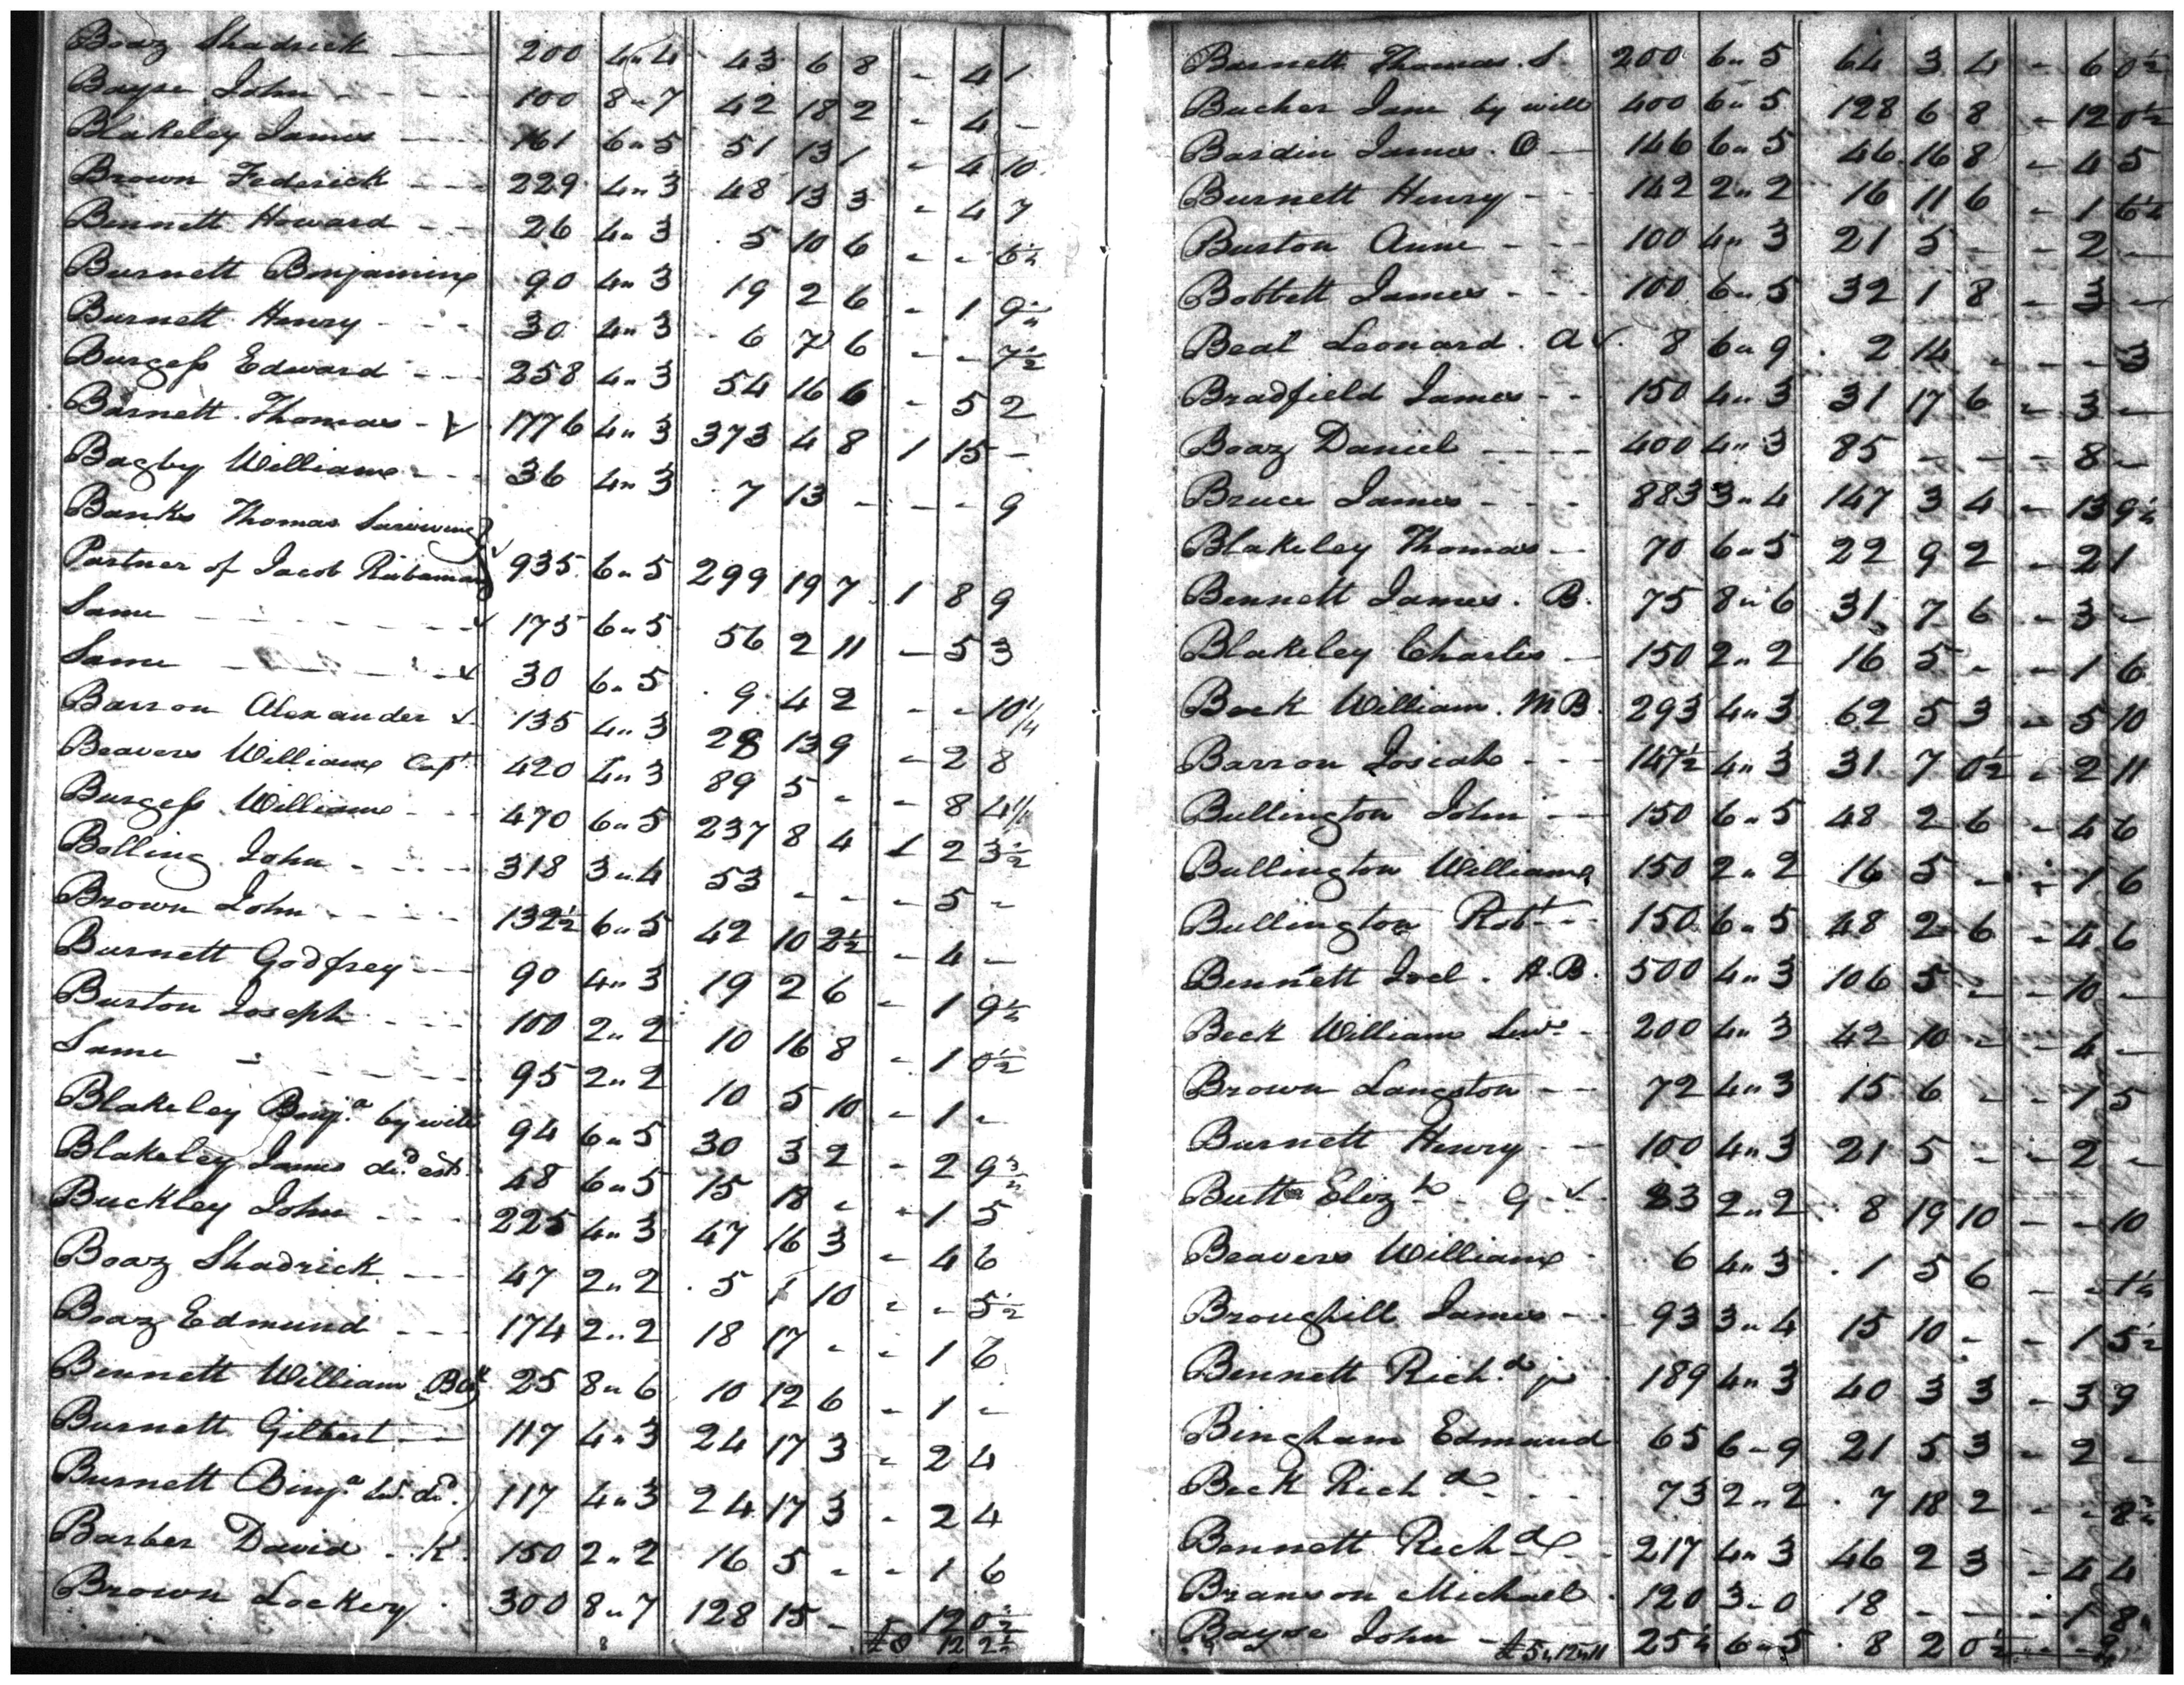 Boaz Shadrick 200 4"4 43 6 8 - 4 1
Bayse John 100 8"7 42 18 2 - 4 -
Blakeley James 161 6"5 51 13 1 - 4 10
Brown Federick 229 4"3 48 13 3 - 4 7
Bennett Howard 26 4"3 5 10 6 - - 6½
Burnett Benjamine 90 4"3 19 2 6 - 1 9½
Burnett Henry 30 4"3 6 7 6 - - 7½
Burgess Edward 258 4"3 54 16 6 - 5 2
Barnett Thomas 1776 4"3 373 4 8 1 15 -
Bagby William 36 4"3 7 13 - - - 9
Banks Thomas Surviving
Partner of Jacob 935 6"5 299 19 7 1 8 9
Same 175 6"5 56 2 11 - 5 3
Same 30 6"5 9 4 2 - - 10¼
Barron Alexander 135 4"3 28 13 9 - 2 8
Beavers William Capt 420 4"3 89 5 - - 8 4½
Burgess William 470 6"5 237 8 4 1 2 3½
Bolling John 318 3"4 53 - - - 5 -
Brown John 132½ 6"5 42 10 2½ - 4 -
Burnett Godfrey 90 4"3 19 2 6 - 1 9½
Burton Joseph 100 2"2 10 16 8 - 1 0½
Same 95 2"2 10 5 10 - 1 -
Blakeley Benja by will 94 6"5 30 3 2 - 2 9½
Blakeley James decd est. 48 6"5 15 18 - - 1 5
Buckley John 225 4"3 47 16 3 - 4 6
Boaz Shadrick 47 2"2 5 1 10 - - 5½
Boaz Edmund 174 2"2 18 17 - - 1 6
Bennett William 25 8"6 10 12 6 - 1 -
Burnett Gilbert 117 4"3 24 17 3 - 2 4
Burnett Benja 117 4"3 24 17 3 - 2 4
Barber David K. 150 2"2 16 5 - - 1 6
Brown Lockey 300 8"7 128 15 - 12 0½
12 2½
Barnett Thomas S. 200 6"5 64 3 4 - 6 0½
Bucher Jane by will 400 6"5 128 6 8 - 12 0½
Bardin James. O 146 6"5 46 16 8 - 4 5
Burnett Henry 142 2"2 16 11 6 - 1 6½
Burton Anne 100 4"3 21 5 - - 2 -
Bobbett James 100 6"5 32 1 8 - 3 -
Beal Leonard. A 8 6"9 2 14 - - - 3
Bradfield James 150 4"3 31 17 6 - 3 -
Boaz Daniel 400 4"3 85 - - - 8 -
Bruce James 883 3"4 147 3 4 - 13 9½
Blakeley Thomas 70 6"5 22 9 2 - 2 1
Bennett James. B. 75 8"6 31 7 6 - 3 -
Blakeley Charles 150 2"2 16 5 - - 1 6
Beck William. MB. 293 4"3 62 5 3 - 5 10
Barron Josiah 147½ 4"3 31 7 0½ - 2 11
Bullington John 150 6"5 48 2 6 - 4 6
Bullington William 150 2"2 16 5 - - 1 6
Bullington Robt 150 6"5 48 2 6 - 4 6
Bennett Joel. A.B. 500 4"3 106 5 - - 10 -
Beck William 200 4"3 42 10 - - 4 -
Brown Langston 72 4"3 15 6 - - 1 5
Burnett Henry 100 4"3 21 5 - - 2 -
Butt Elizh G 83 2"2 8 19 10 - - 10
Beavers William 6 4"3 1 5 6 - - 1½
Broughill James 93 3"4 15 10 - - 1 5½
Bennett Richd jr 189 4"3 40 3 3 - 3 9
Bingham Edmund 65 6"9 21 5 3 - 2 -
Beck Richd 73 2"2 7 18 2 - - 8½
Bennett Richd 217 4"3 46 2 3 - 4 4
Branson Michael 120 3"0 18 - - - 1 8
Bayse John £5"12"11 25¼ 6"5 8 2 0½ - - 9